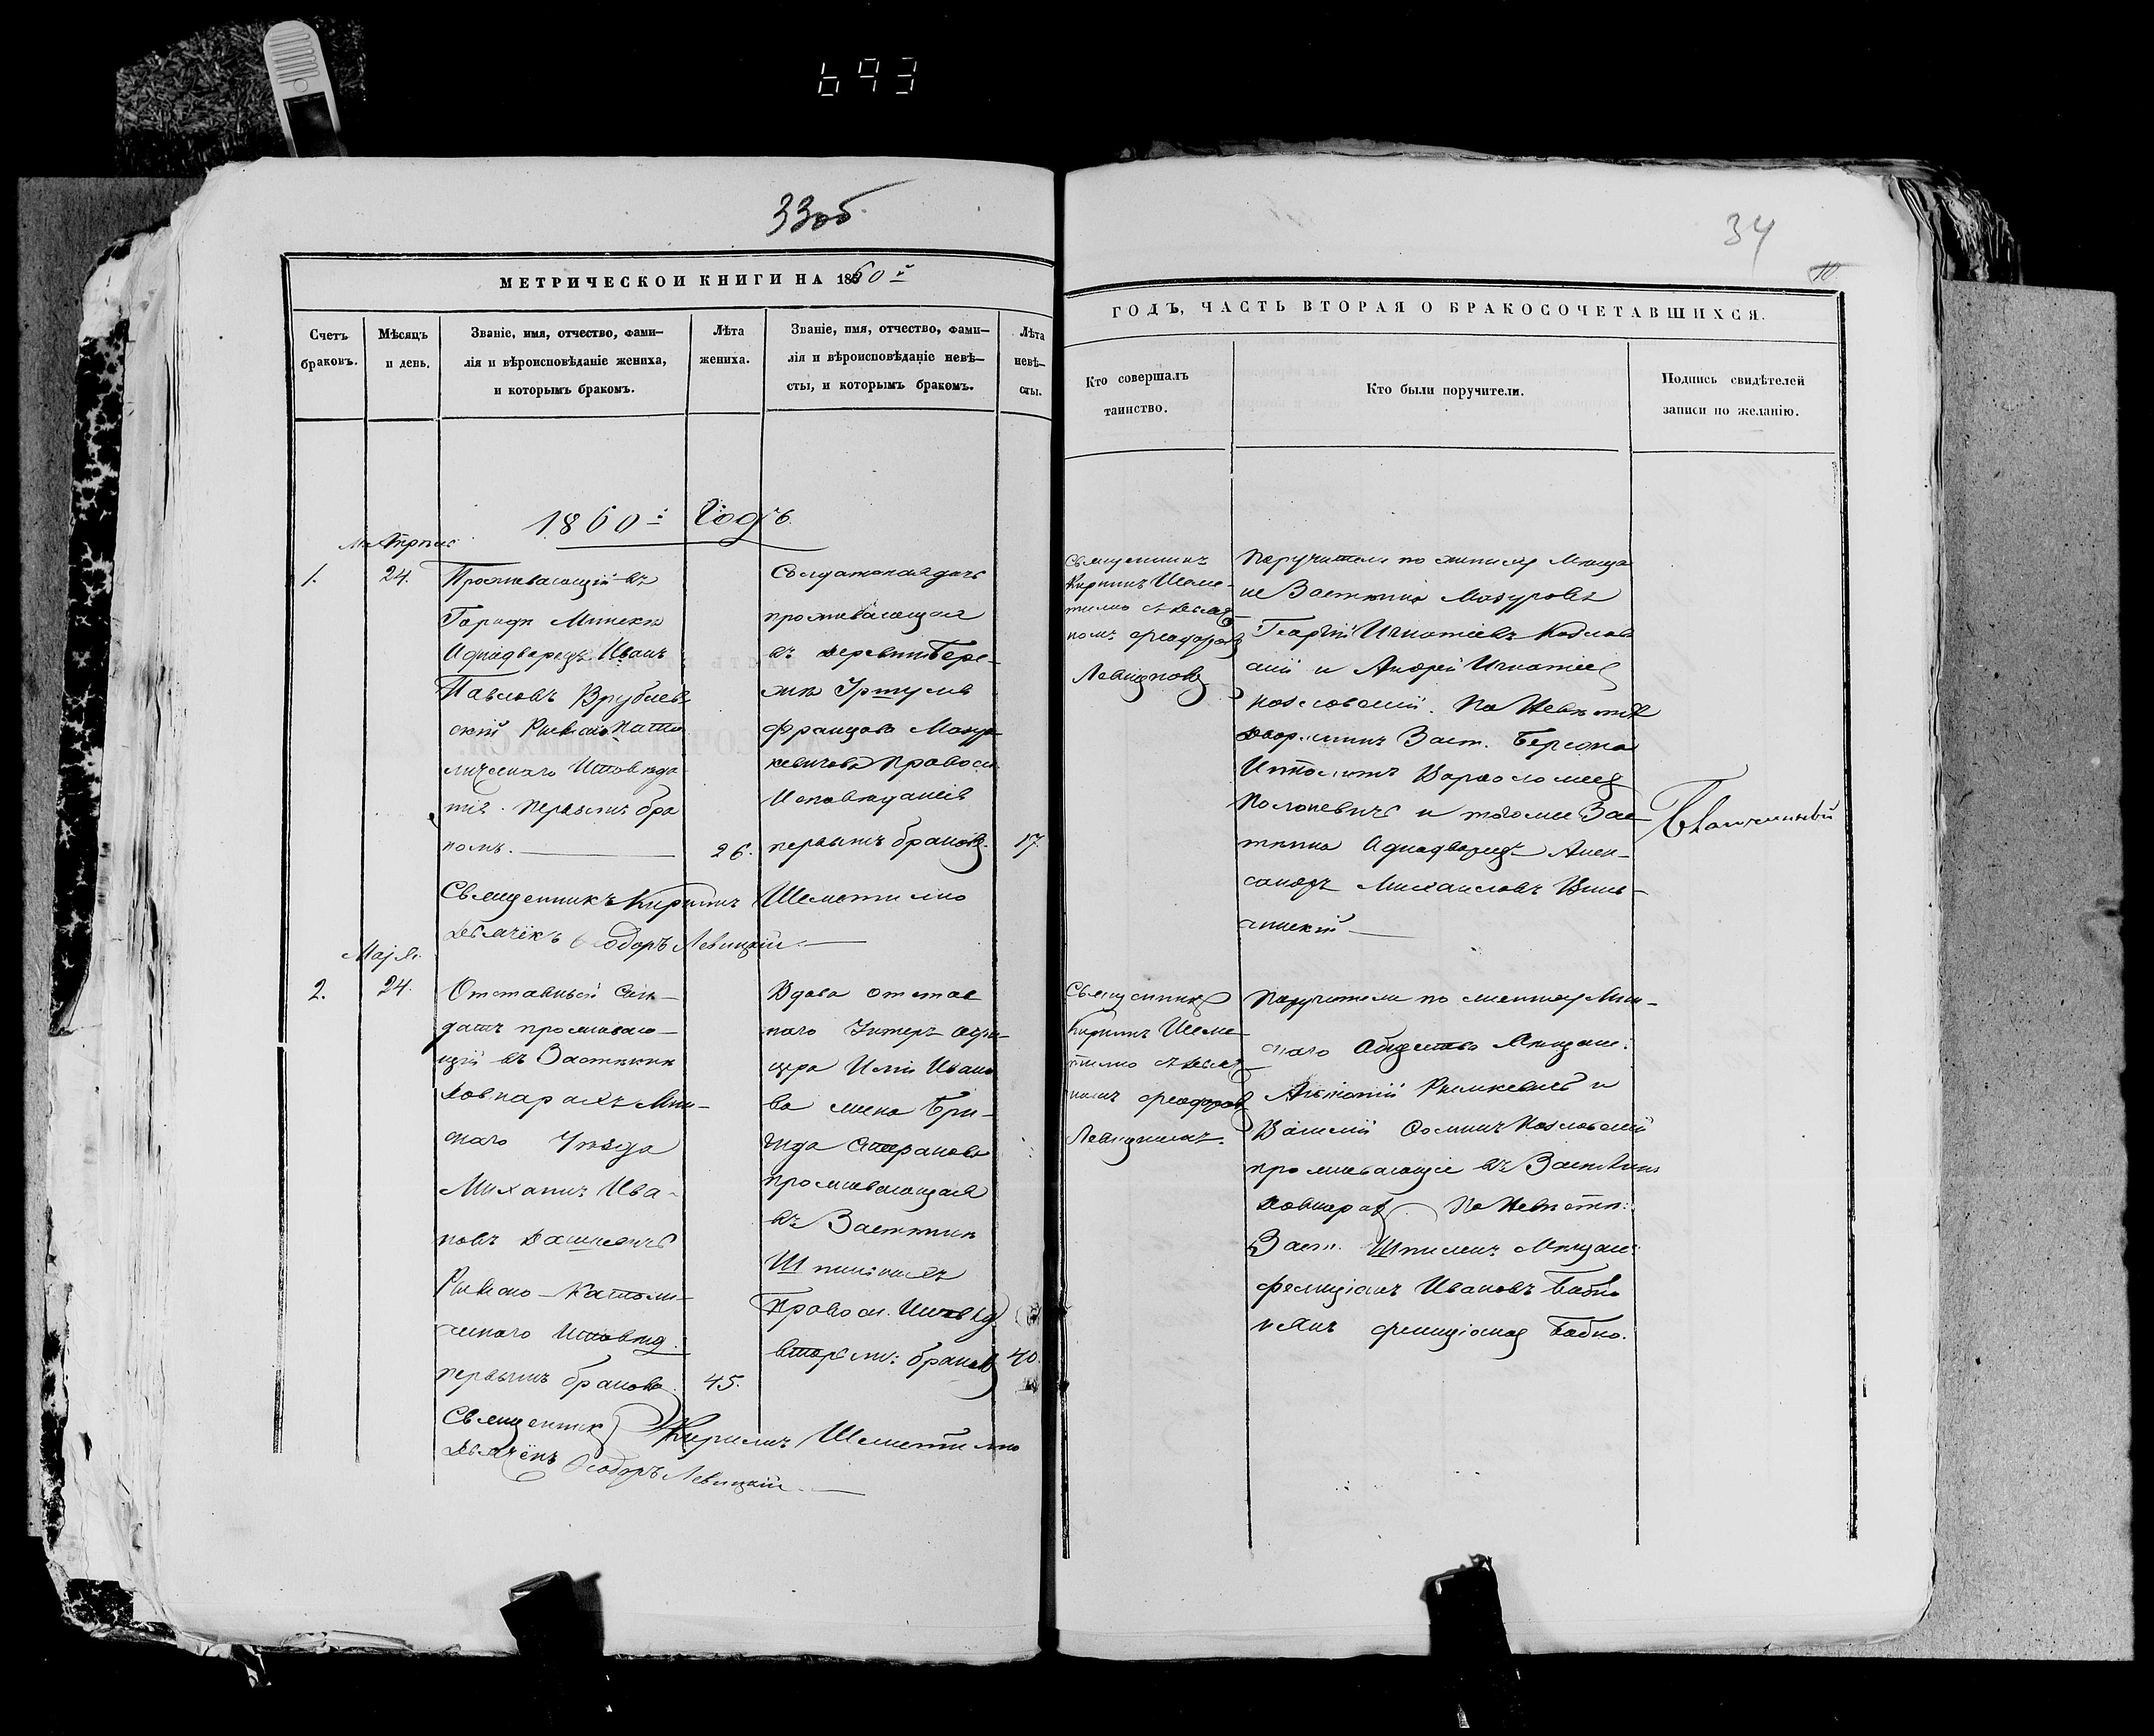 693
33об
34
10
МЕТРИЧЕСКОЙ КНИГИ НА 1860й
ГОДЪ, ЧАСТЬ ВТОРАЯ О БРАКОСОЧЕТАВШИХСЯ.
Счетъ
браковъ.
Мѣсяцъ
и день.
Званіе, имя, отчество, фами-
лія и вѣроисповѣданіе жениха,
и которымъ бракомъ.
Лѣта
жениха.
Званіе, имя, отчество, фами-
лія и вѣроисповѣданіе невѣ-
сты, и которымъ бракомъ.
Лѣта
невѣ-
сты.
Кто совершалъ
таинство.
Кто были поручители.
Подпись свидѣтелей
записи по желанію.
1860й Годъ.
1.
24.
Проживающій въ
Городѣ Минскѣ
Аднадворецъ Иванъ
Павловъ Врублев
скій Римско Като
лическаго Исповѣда
нія. первымъ бра
комъ.
26.
Солдатская дочь
проживающая
въ деревни Бере-
Францова Мацу
кевичова Правосл.
Исповѣданія
первымъ бракомъ.
17.
Священникъ
Кирилъ Шеме-
тилло съ дьяч
комъ Феодоромъ
Левицкимъ
Поручители по жениху Мѣща
не Застѣнка Мазуровъ
Георгій Игнатіевъ Козлов
скій и Андрей Игнатіев
Козловскій. По Невѣстѣ
Дворянинъ Заст.
Ипполитъ Варфоломеев
и тогоже Зас
тѣнка Аднадворецъ Алек-
сандръ Михайловъ
Священникъ Кирилъ Шеметилло
Дьячёкъ Ѳеодоръ Левицкій
Маія
2.
24.
Отставный Сол-
датъ проживаю-
щій въ Застѣнкѣ
Довнарахъ Мин-
скаго Уѣзда
Михаилъ Ива-
новъ Дашкевичъ
Римско-Католи-
ческаго Исповѣд.
первымъ бракомъ
45.
Вдова отстав
наго Унтеръ Офи-
цера Иліи Ивано
ва жена Бри-
гида
проживающая
въ Застѣнкѣ
Правосл. Исповѣд
вторымъ бракомъ
40.
Священникъ
Кирилъ Шеме-
тилло съ дьяч
комъ Феодоромъ
Левицкимъ.
Поручители по жениху Мин-
скаго Общества Мѣщане:
Антоній Рымкевичъ и
Василій Ѳоминъ Козловскій
проживающіе въ Застѣнкѣ
Довнарах. По Невѣстѣ:
Заст. Мѣщане
Фелиціанъ Ивановъ Бабко
Фелиціанов Бабко.
Священник Кирилъ Шеметилло
Дьячёкъ Ѳеодоръ Левицкій